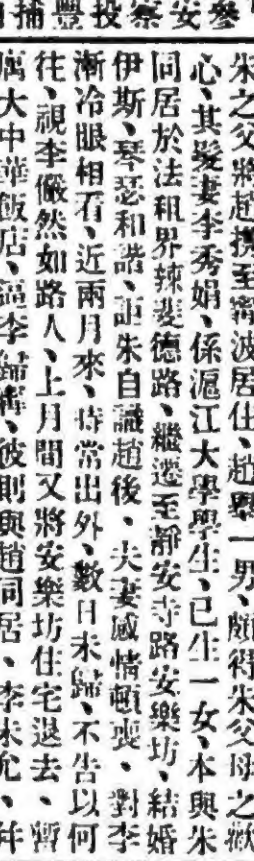 參安察投豐捕
朱之父將趙携至甯波居住、趙舉一男、頗得朱父母之歡
心、其髮妻李秀娟、係滬江大學學生、已生一女、本與朱
同居於法租界辣斐德路、繼遷至靜安寺路安樂坊、結婚
伊斯、琴瑟和諧、詎朱自識趙後、夫妻感情頓喪、對李
漸冷眼相看、近兩月來、時常出外、數日未歸、不告以何
往、視李儼然如路人、上月間又將安樂坊住宅退去、暫
寓大中華飯店、逼李歸甯、彼則與趙同居、李未允、